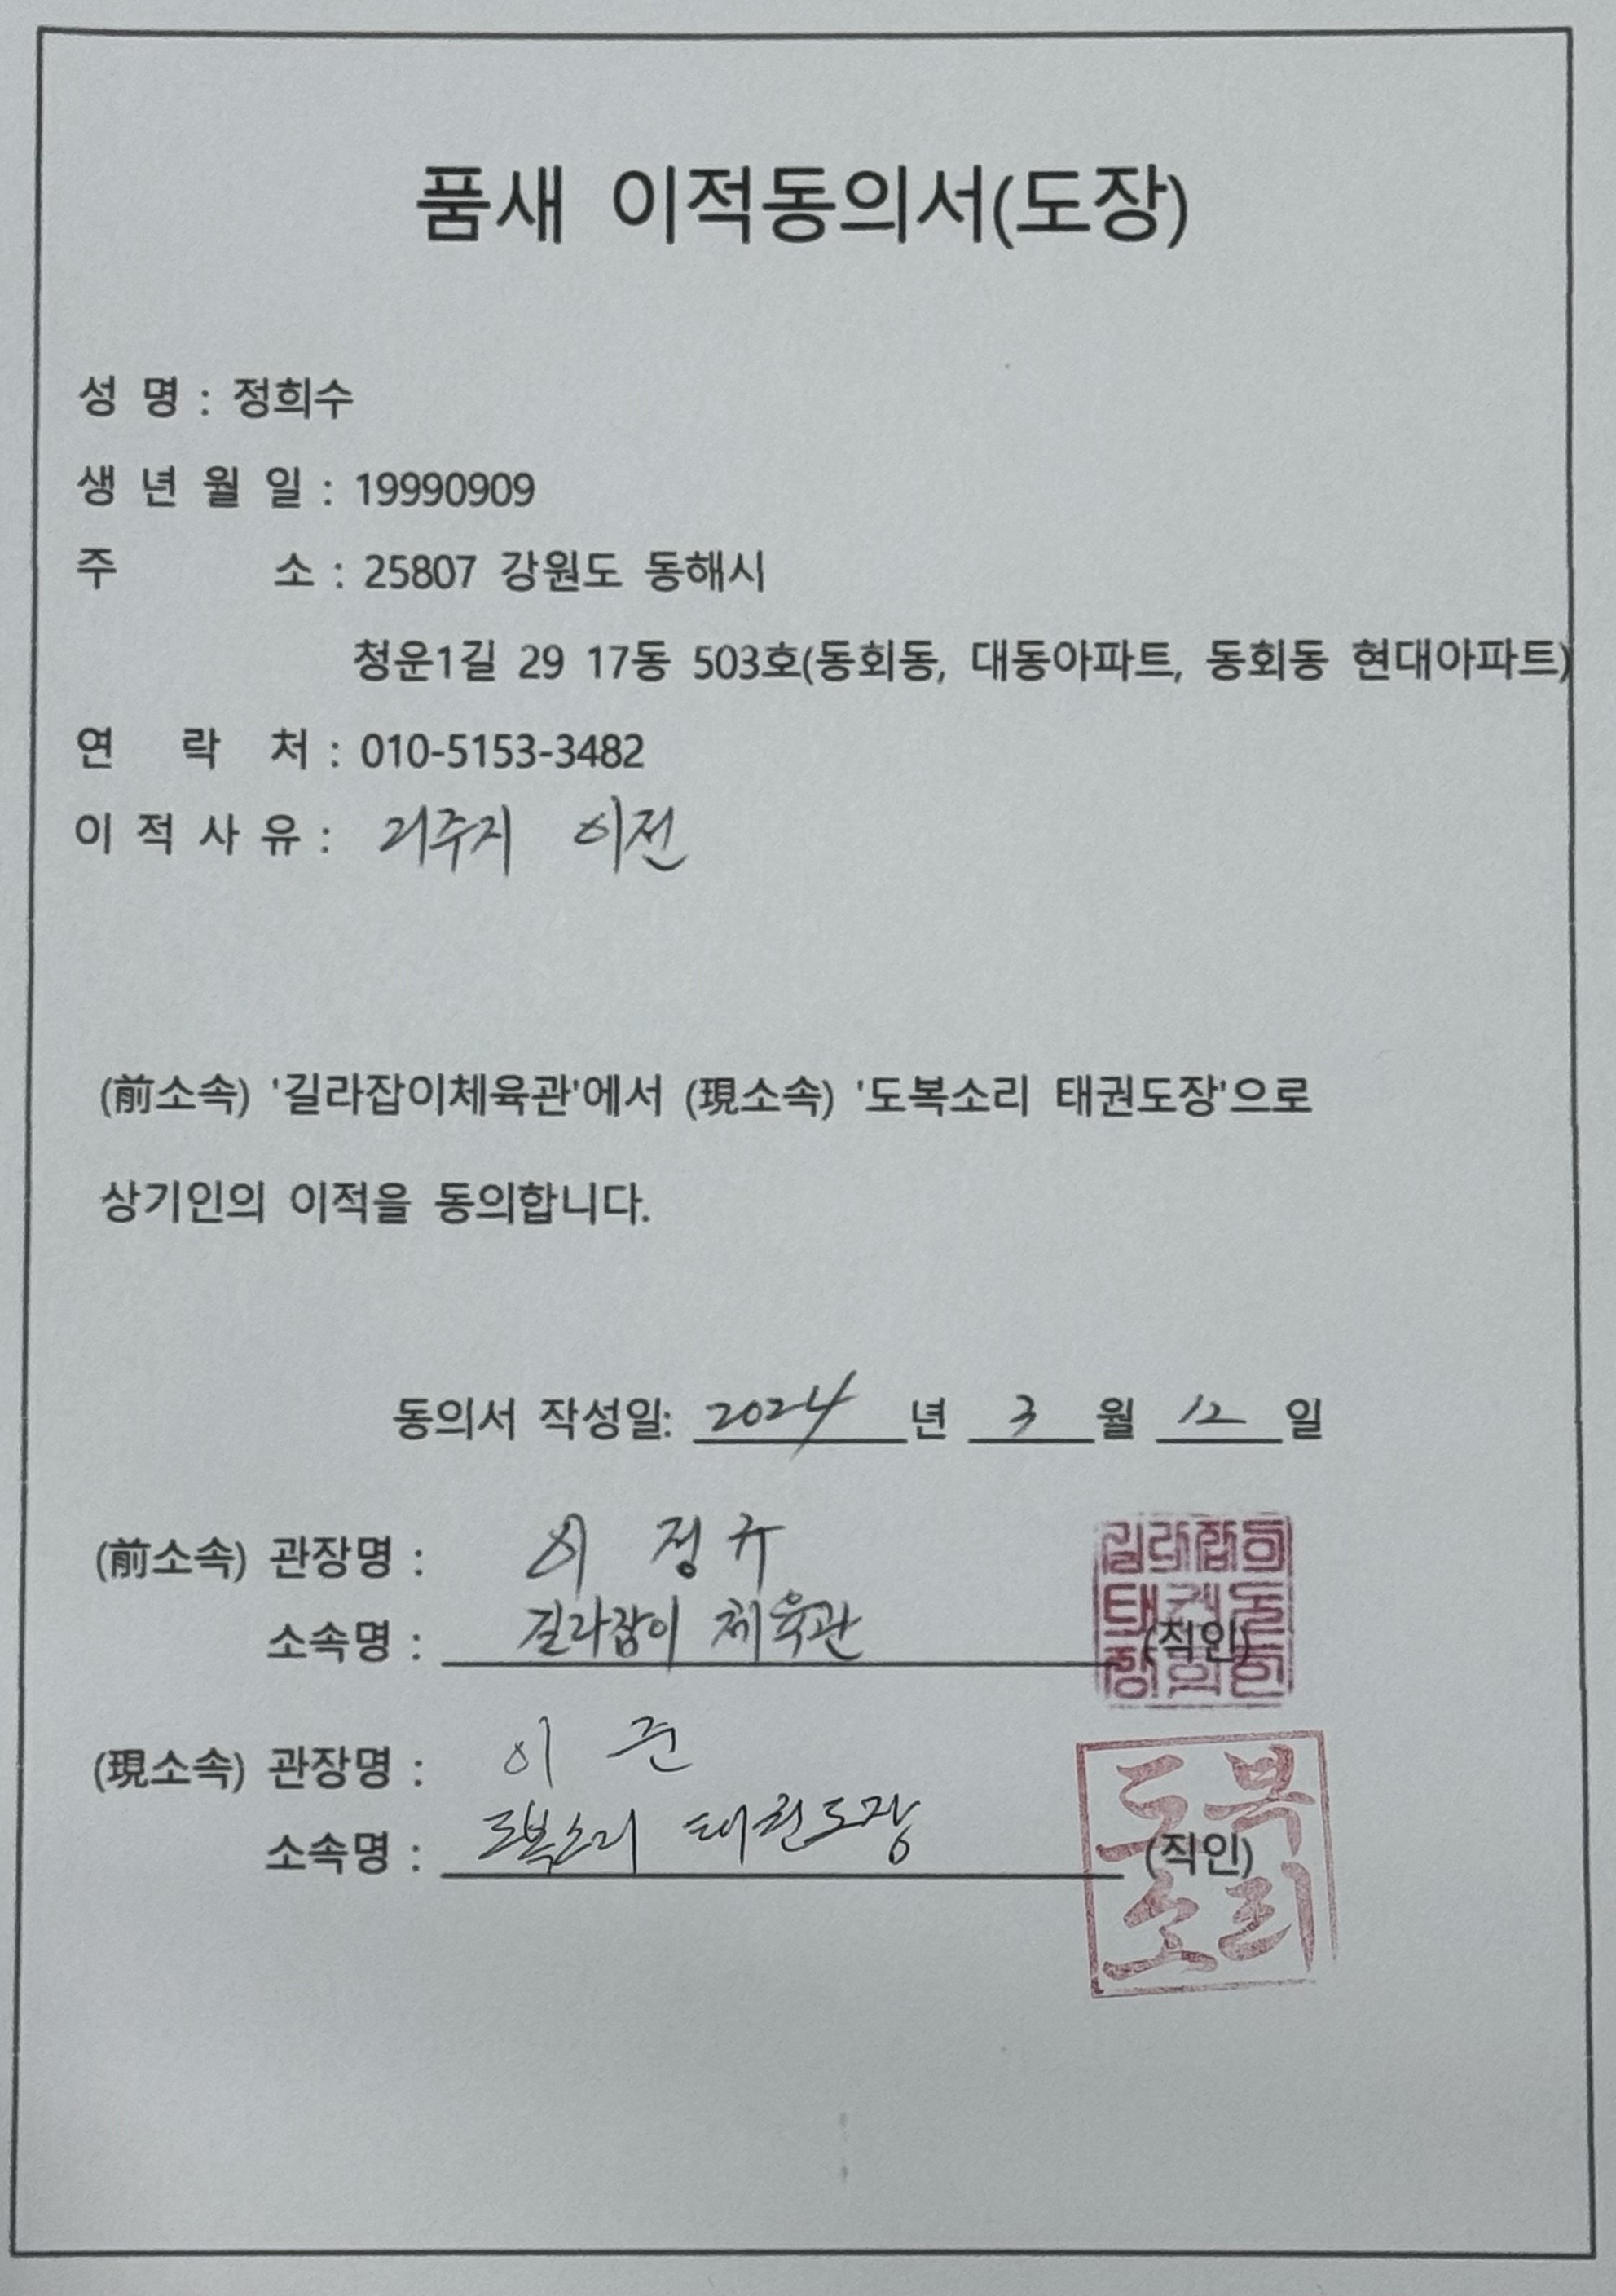 품새 이적동의서(도장)
성 명 : 정희수
생 년 월 일 : 19990909
주 소 : 25807 강원도 동해시
청운1길 29 17동 503호(동회동, 대동아파트, 동회동 현대아파트)
연 락 처 : 010-5153-3482
이 적 사 유 : 거주지 이전
(前소속) '길라잡이체육관'에서 (現소속) '도복소리 태권도장'으로
상기인의 이적을 동의합니다.
동의서 작성일: 2024 년 3 월 12 일
(前소속) 관장명 : 이 정 규
소속명 : 길라잡이 체육관 (직인)
(現소속) 관장명 : 이 준
소속명 : 도복소리 태권도장 (직인)
도복
소리